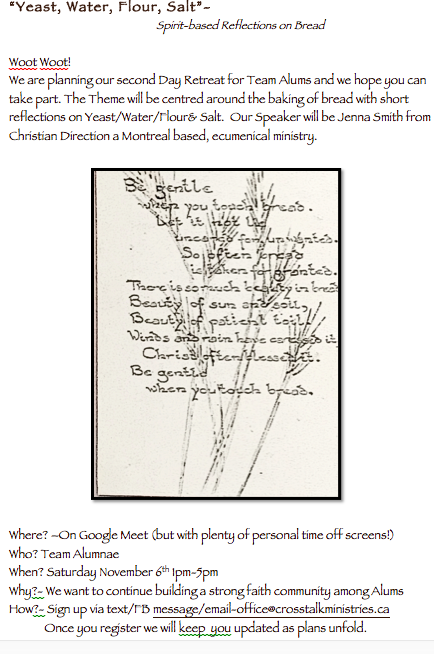 "Yeast, Water, Flour, Salt"~
Spirit-based Reflections on Bread
Woot Woot!
We are planning our second Day Retreat for Team Alums and we hope you can
take part. The Theme will be centred around the baking of bread with short
reflections on Yeast/Water/Flour& Salt. Our Speaker will be Jenna Smith from
Christian Direction a Montreal based, ecumenical ministry.
Be gentle
when you touch bread.
Let it not lie
uncared for, unwanted.
So often bread
is taken for granted.
There is so much beauty in bread
Beauty of sun and soil,
Beauty of patient toil
Winds and rain have caressed it
Christ often blessed it.
Be gentle
when you touch bread.
Where? ~On Google Meet (but with plenty of personal time off screens!)
Who? Team Alumnae
When? Saturday November 6th 1pm-5pm
Why?~ We want to continue building a strong faith community among Alums
How?~ Sign up via text/FB message/email-office@crosstalkministries.ca
Once you register we will keep you updated as plans unfold.